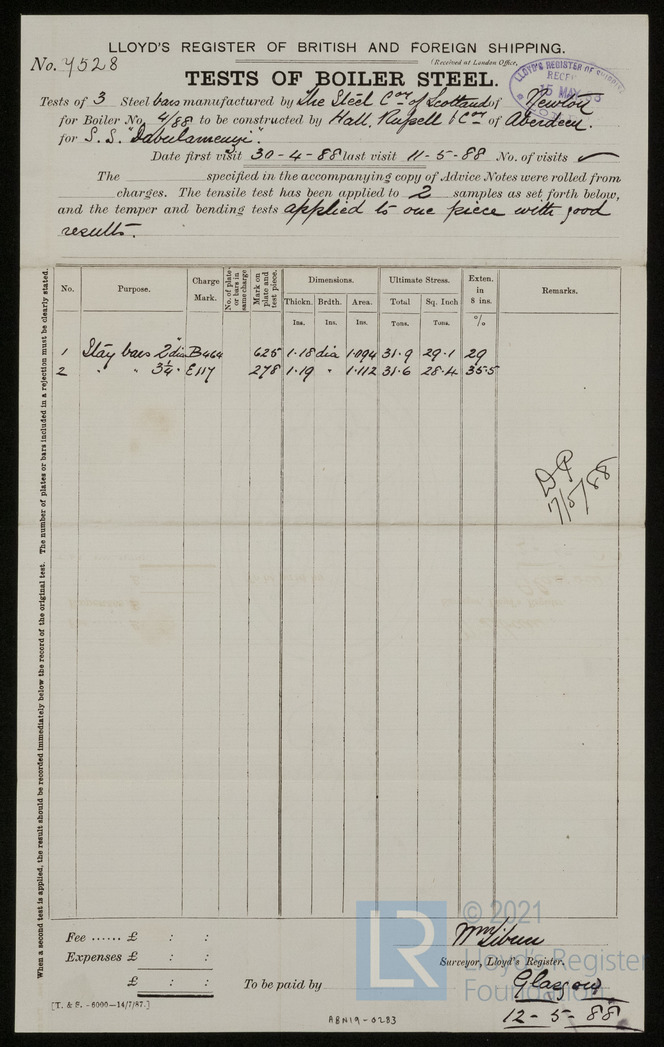 LLOYD'S REGISTER OF BRITISH AND FOREIGN SHIPPING.
No. 7528
(Received at London Office,
LLOYD'S REGISTER OF SHIPPING
15 MAY
TESTS OF BOILER STEEL.
Tests of 3 Steel bars manufactured by The Steel Coy of Scotland of Newton
for Boiler No. 4/88 to be constructed by Hall, Russell & Coy of Aberdeen.
for S.S. "Dabulamanzi".
Date first visit 30-4-88 last visit 11-5-88 No. of visits ✓
The specified in the accompanying copy of Advice Notes were rolled from
charges. The tensile test has been applied to 2 samples as set forth below,
and the temper and bending tests applied to one piece with good
results.
When a second test is applied, the result should be recorded immediately below the record of the original test. The number of plates or bars included in a rejection must be clearly stated.
No. Purpose. Charge Mark. No. of plates or bars in same charge Mark on plate and test piece. Dimensions. Ultimate Stress. Exten. in 8 ins. Remarks.
Thickn. Brdth. Area. Total Sq. Inch
Ins. Ins. Ins. Tons. Tons. %
1 Stay bars 2" dia B464 625 1.18 dia 1.094 31.9 29.1 29
2 " " 3¼ " E117 278 1.19 " 1.112 31.6 28.4 35.5
17/5/88
Fee ...... £ : :
Expenses £ : :
£ : : To be paid by
Wm
Surveyor, Lloyd's Register,
Glasgow
12-5-88
[T. & S. -6000-14/7/87.]
ABN19-0283
© 2021
LR
Lloyd's Register
Foundation